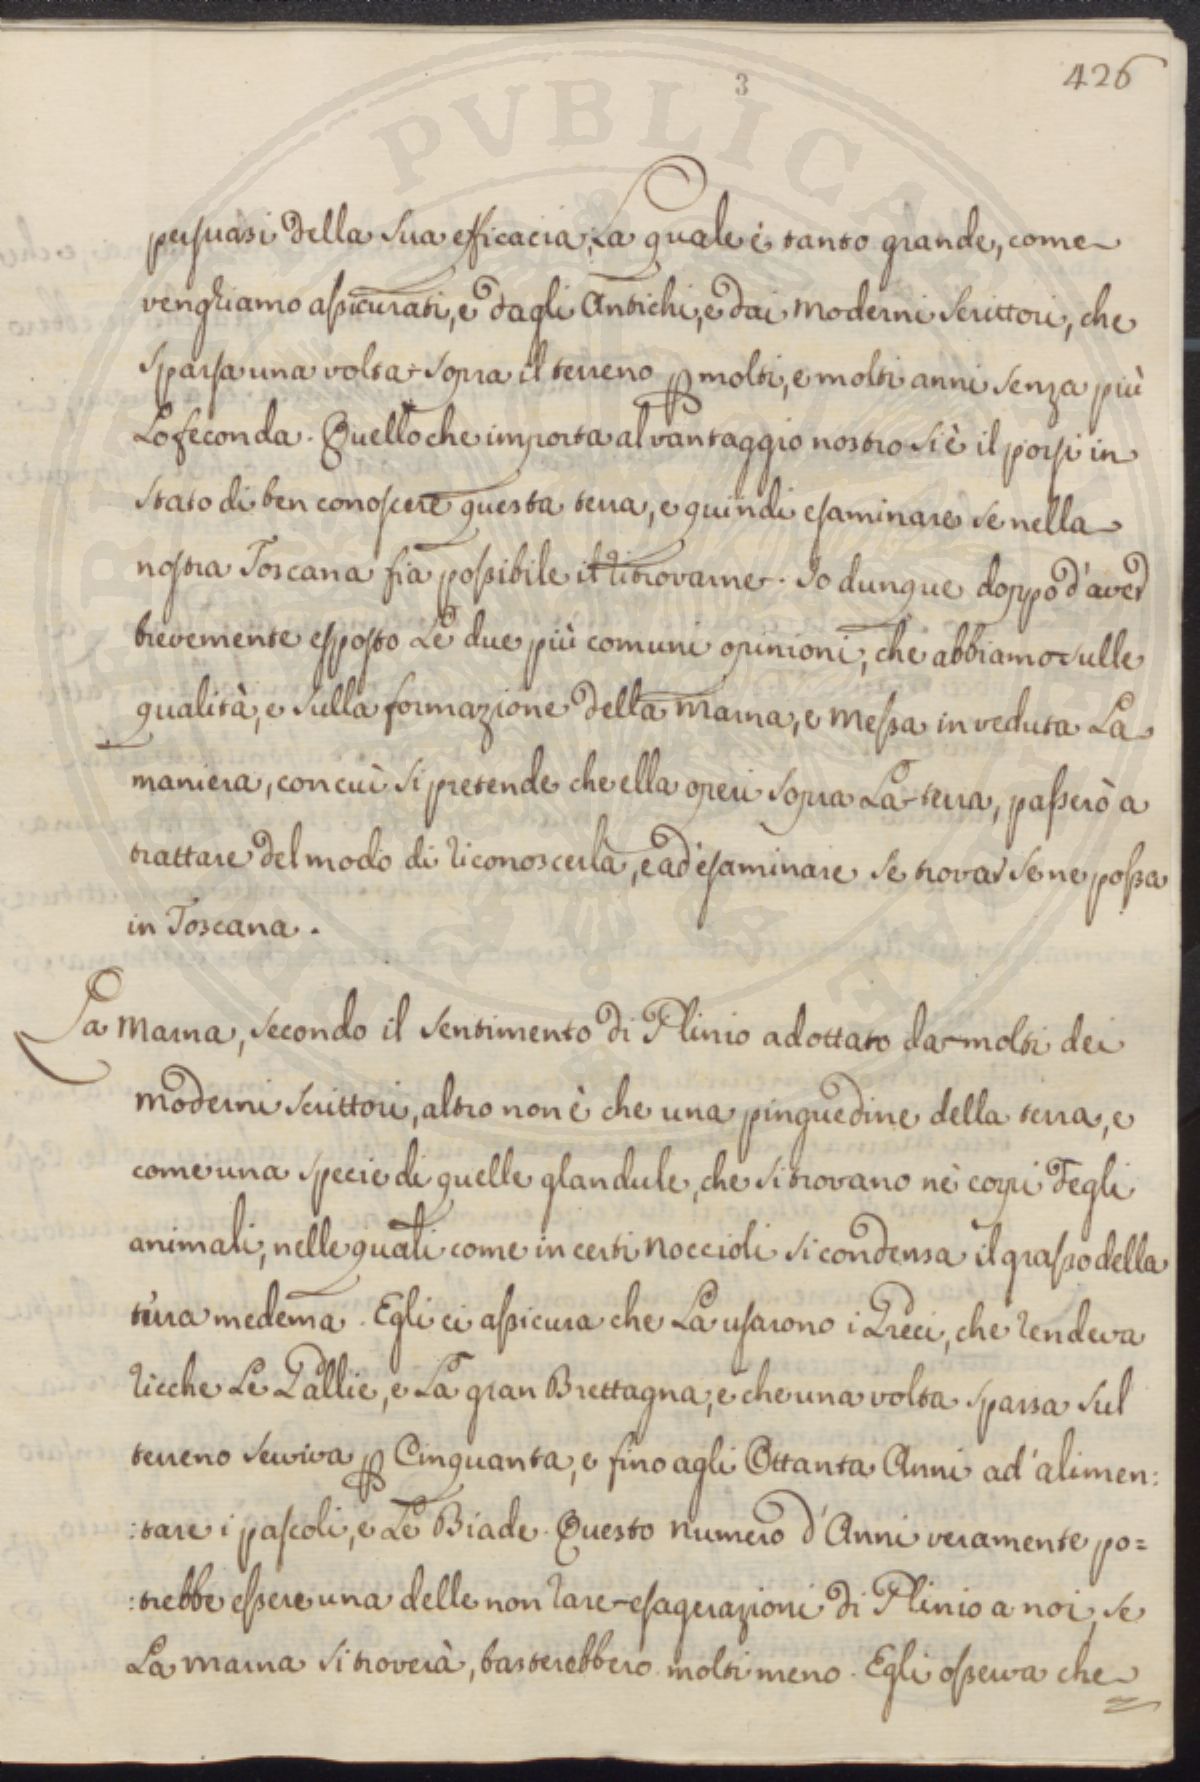 3
426
persuasi della sua efficacia, La quale è tanto grande, come
venghiamo assicurati, e dagli Antichi, e dai Moderni Scrittori, che
Sparsa una volta sopra il terreno ꝑ molti, e molti anni senza più
Lo feconda. Quello che importa al vantaggio nostro si è il porsi in
Stato di ben conoscere questa terra, e quindi esaminare se nella
nostra Toscana fia possibile il ritrovarne. Io dunque doppo d'aver
brevemente esposto Le due più comuni opinioni, che abbiamo sulle
qualità, e sulla formazione della Marna, e Messa in veduta La
maniera, con cui si pretende che ella operi sopra La terra, passerò a
trattare del modo di riconoscerla, e ad' esaminare se trovar se ne possa
in Toscana.
La Marna, secondo il sentimento di Plinio adottato da molti dei
Moderni Scrittori, altro non è che una pinguedine della terra, e
come una specie di quelle glandule, che si trovano nè corpi degli
animali, nelle quali come in certi noccioli si condensa il grasso della
terra medema. Egli ci assicura che La usarono i Greci, che rendeva
ricche Le Gallie, e La gran Brettagna, e che una volta sparsa sul
terreno serviva ꝑ Cinquanta, e fino agli Ottanta Anni ad' alimen:
:tare i pascoli, e Le Biade. Questo numero d'Anni veramente po=
:trebbe essere una delle non rare esagerazioni di Plinio a noi, se
La marna si troverà, basterebbero molti meno. Egli osserva che